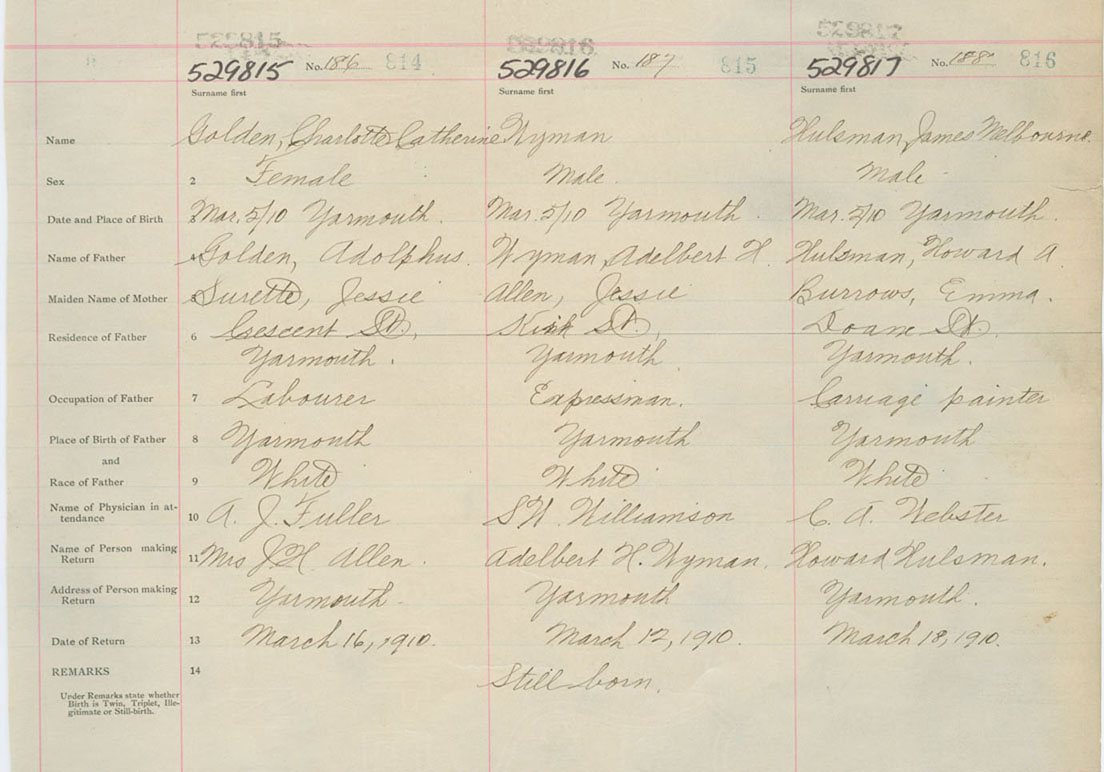 529815 529816 529817
529815 No. 186 814 529816 No. 187 815 529817 No. 188 816
Surname first Surname first Surname first
Name Golden, Charlotte Catherine Wyman Hulsman, James Melbourne
Sex 2 Female Male. Male
Date and Place of Birth 3 Mar. 5/10 Yarmouth. Mar. 5/10 Yarmouth. Mar. 5/10 Yarmouth.
Name of Father 4 Golden, Adolphus. Wyman, Adelbert H. Hulsman, Howard A
Maiden Name of Mother 5 Surette, Jessie Allen, Jessie Burrows, Emma.
Residence of Father 6 Crescent St., Kirk St., Doane St.
Yarmouth. Yarmouth Yarmouth.
Occupation of Father 7 Labourer Expressman. Carriage painter
Place of Birth of Father 8 Yarmouth Yarmouth Yarmouth
and
Race of Father 9 White White White
Name of Physician in at-
tendance 10 A. J. Fuller S W. Williamson C. A. Webster
Name of Person making
Return 11 Mrs J. H. Allen. Adelbert H. Wyman. Howard Hulsman.
Address of Person making
Return 12 Yarmouth Yarmouth Yarmouth.
Date of Return 13 March 16, 1910. March 12, 1910. March 18, 1910.
REMARKS 14 Still born.
Under Remarks state whether
Birth is Twin, Triplet, Ille-
gitimate or Still-birth.